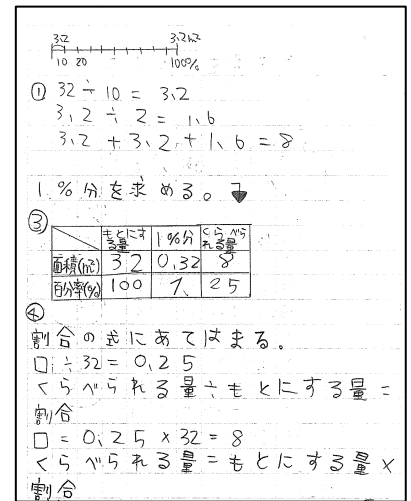 3.2 32m²
10 20 100%
① 32÷10=3.2
3.2÷2=1.6
3.2+3.2+1.6=8
1%分を求める。
③
もとにする量 1%分 くらべられる量
面積(m²) 32 0.32 8
百分率(%) 100 1 25
④
割合の式にあてはまる。
□÷32=0.25
くらべられる量÷もとにする量=
割合
□=0.25×32=8
くらべられる量=もとにする量×
割合